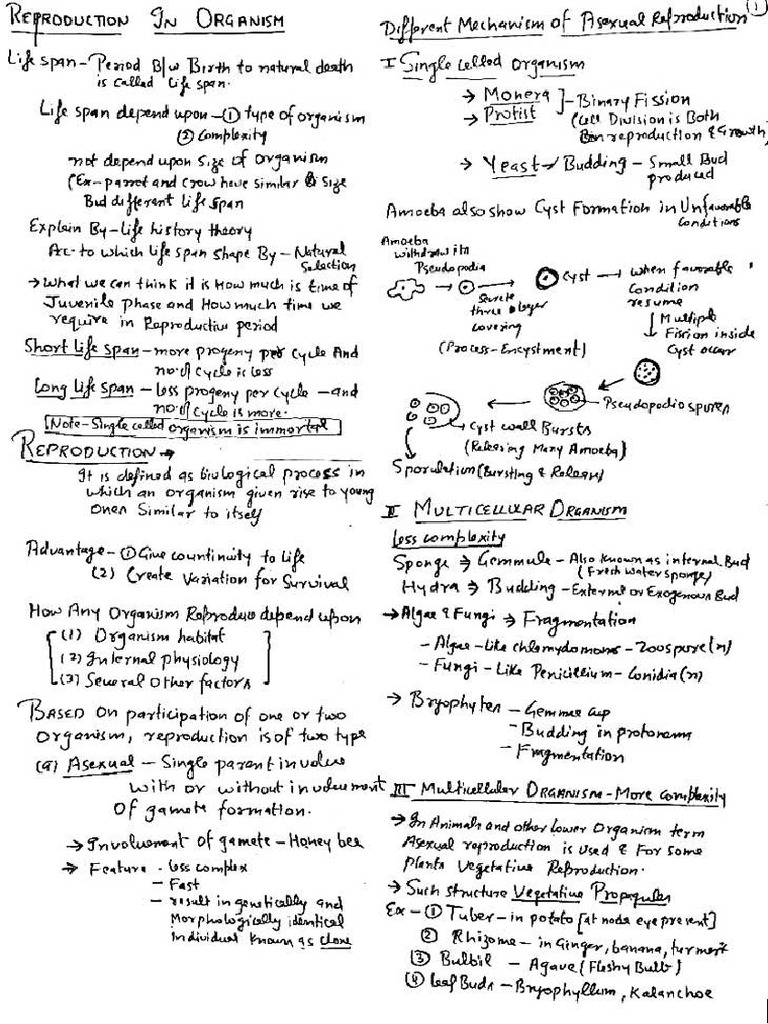 REPRODUCTION IN ORGANISM
Life span - Period B/w Birth to natural death
is called life span.
Life span depend upon - ① type of organism
② complexity
not depend upon size of organism
(Ex - parrot and crow have similar size
But different life span
Explain By - life history theory
Ac. to which life span shape By - Natural
Selection
→ What we can think it is How much is time of
Juvenile phase and How much time we
require in Reproductive period
Short life span - more progeny per cycle And
no. of cycle is less
Long life span - less progeny per cycle - and
no. of cycle is more.
Note - Single celled organism is immortal
REPRODUCTION →
It is defined as biological process in
which an organism given rise to young
ones similar to itself
Advantage - ① Give countinuity to life
(2) Create variation for survival
How Any Organism Reproduce depend upon
(1) Organism habitat
(2) Internal physiology
(3) Several Other factors
BASED On participation of one or two
organism, reproduction is of two type
(a) Asexual - Single parent involve
with or without involvement
Of gamete formation.
→ Involvement of gamete - Honey bee
→ Feature - less complex
- Fast
- result in genetically and
Morphologically identical
Individual known as clone
①
Different Mechanism of Asexual Reproduction
I Single celled organism
→ Monera
→ Protist
- Binary Fission
(Cell Division is Both
reproduction & Growth)
→ Yeast - Budding - Small Bud
produced
Amoeba also show Cyst Formation in Unfavorable
Conditions
Amoeba
withdraw its
Pseudopodia
Secrete
three layer
covering
(Process - Encystment)
Cyst → when favorable
Condition
resume
Multiple
Fission inside
Cyst occur
Pseudopodiospores
Cyst wall Bursts
(Releasing Many Amoeba)
Sporulation (Bursting & Release)
II MULTICELLULAR ORGANISM
Less complexity
Sponge → Gemmule - Also known as internal Bud
(Fresh water sponge)
Hydra → Budding - External or Exogenous Bud
→ Algae & Fungi → Fragmentation
- Algae - Like chlamydomonas - Zoospore (n)
- Fungi - Like Penicillium - Conidia (n)
→ Bryophytes - Gemmae cup
- Budding in protonema
- Fragmentation
III Multicellular ORGANISM - More complexity
→ In Animals and other lower Organism term
Asexual reproduction is used & For some
plants Vegetative Reproduction.
→ Such structure Vegetative Propagules
Ex - ① Tuber - in potato [at node eye present]
② Rhizome - in Ginger, banana, turmeric
③ Bulbil - Agave (Fleshy Bulb)
④ Leaf Buds - Bryophyllum, Kalanchoe